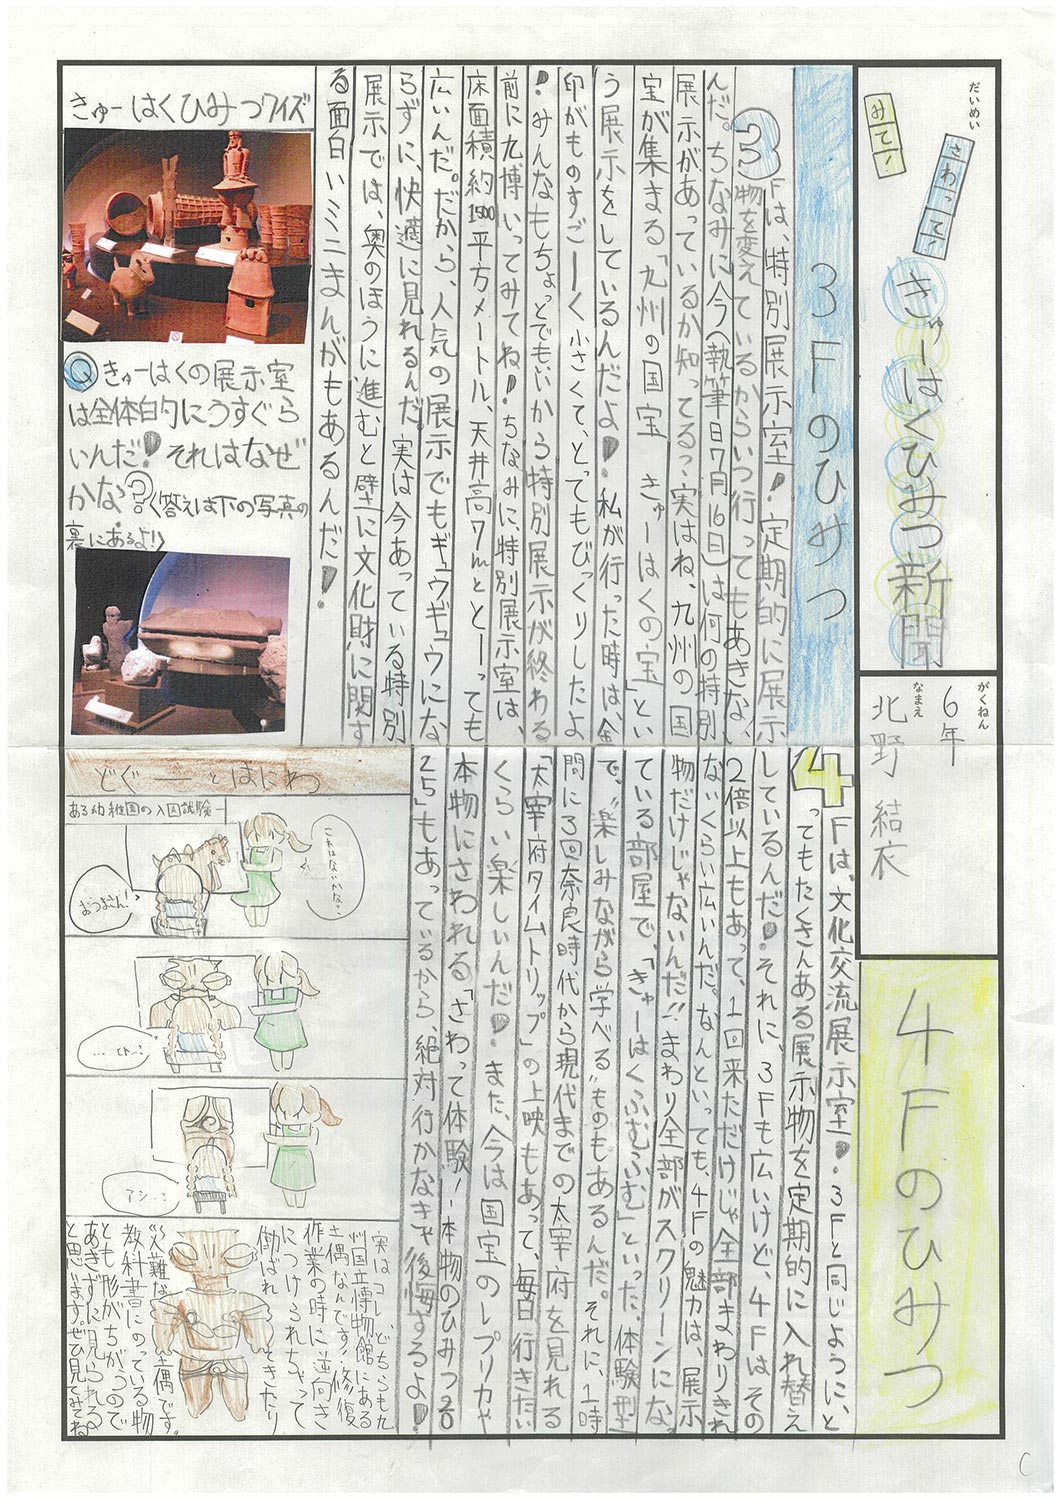 だいめい
みて!
さわって!
きゅーはくひみつ新聞
がくねん
6年
なまえ
北野 結衣
3Fのひみつ
3Fは、特別展示室!定期的に展示
物を変えているからいつ行ってもあきない
んだ。ちなみに今(執筆日7月16日)は何の特別
展示があっているか知ってるっ?実はね、九州の国
宝が集まる「九州の国宝 きゅーはくの宝」とい
う展示をしているんだよ!私が行った時は、金
印がものすごーく小さくて、とってもびっくりしたよ
!みんなもちょっとでもいいから特別展示が終わる
前に九博いってみてね!ちなみに、特別展示室は、
床面積約1500平方メートル、天井高7mとと─っても
広いんだ。だから、人気の展示でもギュウギュウにな
らずに、快適に見れるんだ。実は今あっている特別
展示では、奥のほうに進むと壁に文化財に関す
る面白いミニまんがもあるんだ!
きゅーはくひみつクイズ
Qきゅーはくの展示室
は全体的にうすぐら
いんだ!それはなぜ
かな?(答えは下の写真の
裏にあるよ!)
4Fのひみつ
4Fは、文化交流展示室!3Fと同じように、と
ってもたくさんある展示物を定期的に入れ替え
しているんだ!それに、3Fも広いけど、4Fはその
2倍以上もあって、1回来ただけじゃ全部まわりきれ
ないくらい広いんだ。なんといっても、4Fの魅力は、展示
物だけじゃないんだ!!まわり全部がスクリーンになっ
ている部屋で、「きゅーはくふむふむ」といった、体験型
で、"楽しみながら学べる"ものもあるんだ。それに、1時
間に3回奈良時代から現代までの太宰府を見れる
「太宰府タイムトリップ」の上映もあって、毎日行きたい
くらい楽しいんだ!また、今は国宝のレプリカや
本物にさわれる「さわって体験!本物のひみつ20
25」もあっているから、絶対行かなきゃ後悔するよ!
どぐーとはにわ
ある幼稚園の入園試験─
これはなにかな?
おうまさん!
…ヒト…?
アシ…?
実はコレ、どちらも九
州国立博物館にある
土偶なんです!修復
作業の時に逆向き
につけられちゃって
働ばれ
てきたり
災難な土偶です。
教科書にのっている物
とも形がちがうので
あきずに見られる
と思います。ぜひ見てみてね
C